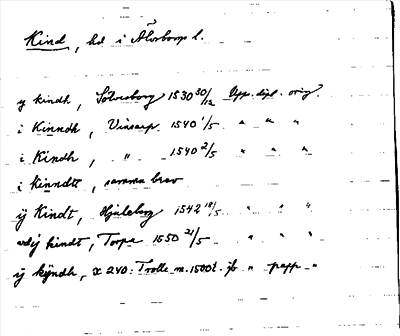 Kind, hd i Älvsborgs l.
y kindh, Sölvesborg 1530 30/12 Upps. dipl. orig.
i Kinndh, Vinsarp 1540 1/5 " " "
i Kindh, " 1540 2/5 " " "
i kinndtt, samma brev
ÿ Kindt, 1542 18/5 " " "
kindt, Torpa 1550 21/5 " " "
ÿ kÿndh, 240: Trolle m. 1500t. " papp "